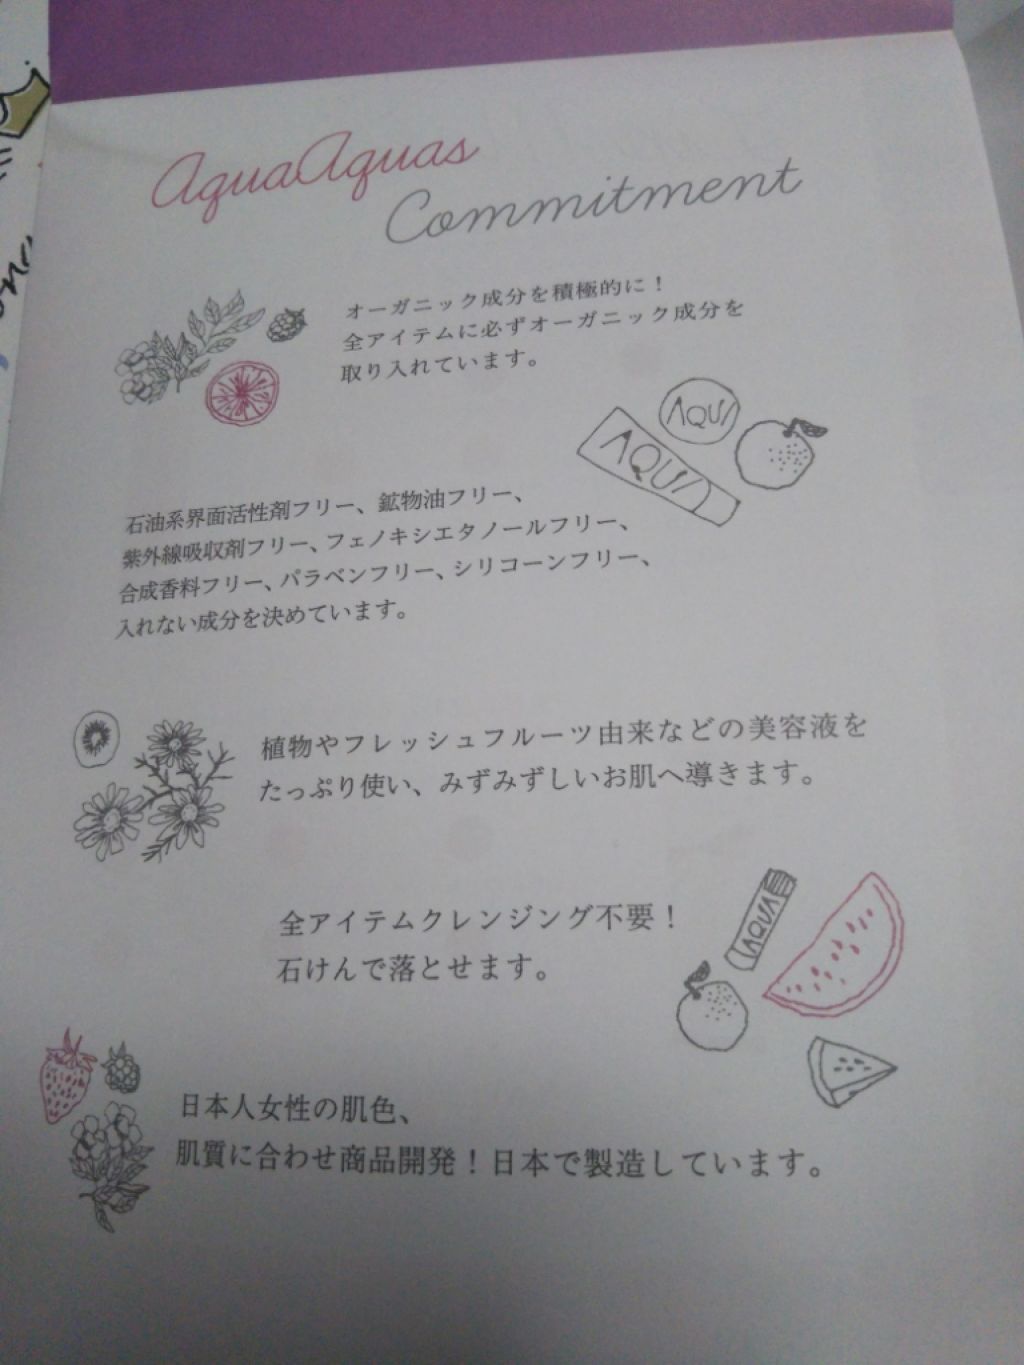 AquaAquas
Commitment
オーガニック成分を積極的に！
全アイテムに必ずオーガニック成分を
取り入れています。
AQUA
AQUA
石油系界面活性剤フリー、鉱物油フリー、
紫外線吸収剤フリー、フェノキシエタノールフリー、
合成香料フリー、パラベンフリー、シリコーンフリー、
入れない成分を決めています。
植物やフレッシュフルーツ由来などの美容液を
たっぷり使い、みずみずしいお肌へ導きます。
全アイテムクレンジング不要！
石けんで落とせます。
AQUA
日本人女性の肌色、
肌質に合わせ商品開発！日本で製造しています。